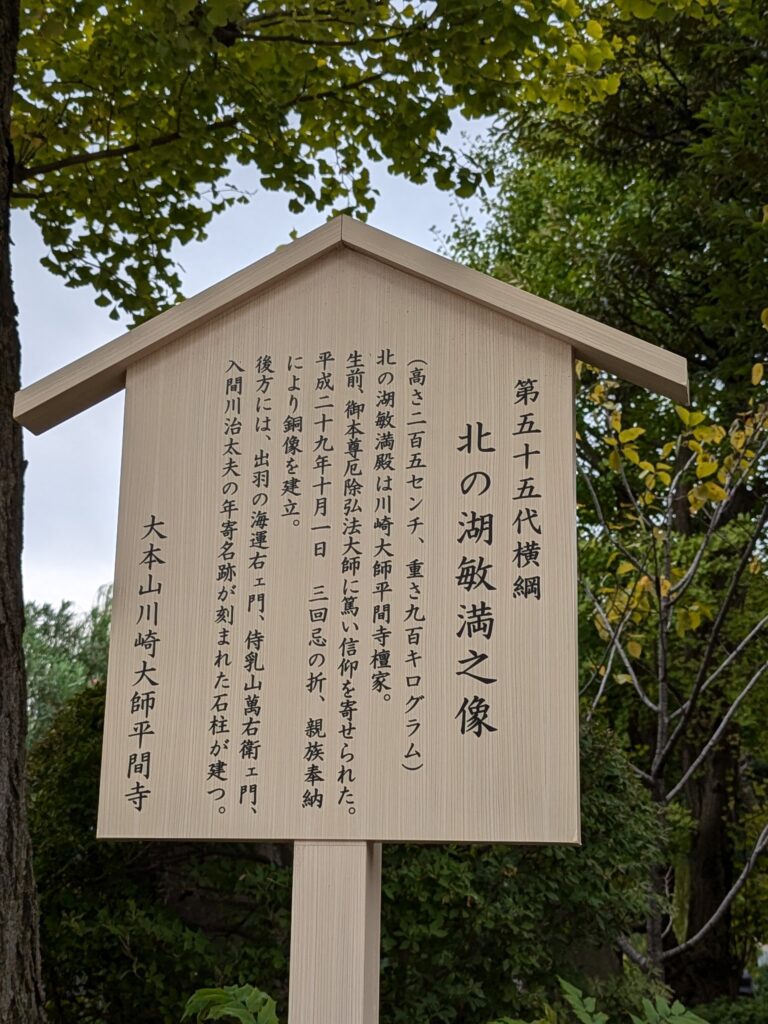 第五十五代横綱
北の湖敏満之像
(高さ二百五センチ、重さ九百キログラム)
北の湖敏満殿は川崎大師平間寺檀家。
生前、御本尊厄除弘法大師に篤い信仰を寄せられた。
平成二十九年十月一日 三回忌の折、親族奉納
により銅像を建立。
後方には、出羽の海運右ェ門、待乳山萬右衛ェ門、
入間川治太夫の年寄名跡が刻まれた石柱が建つ。
大本山川崎大師平間寺